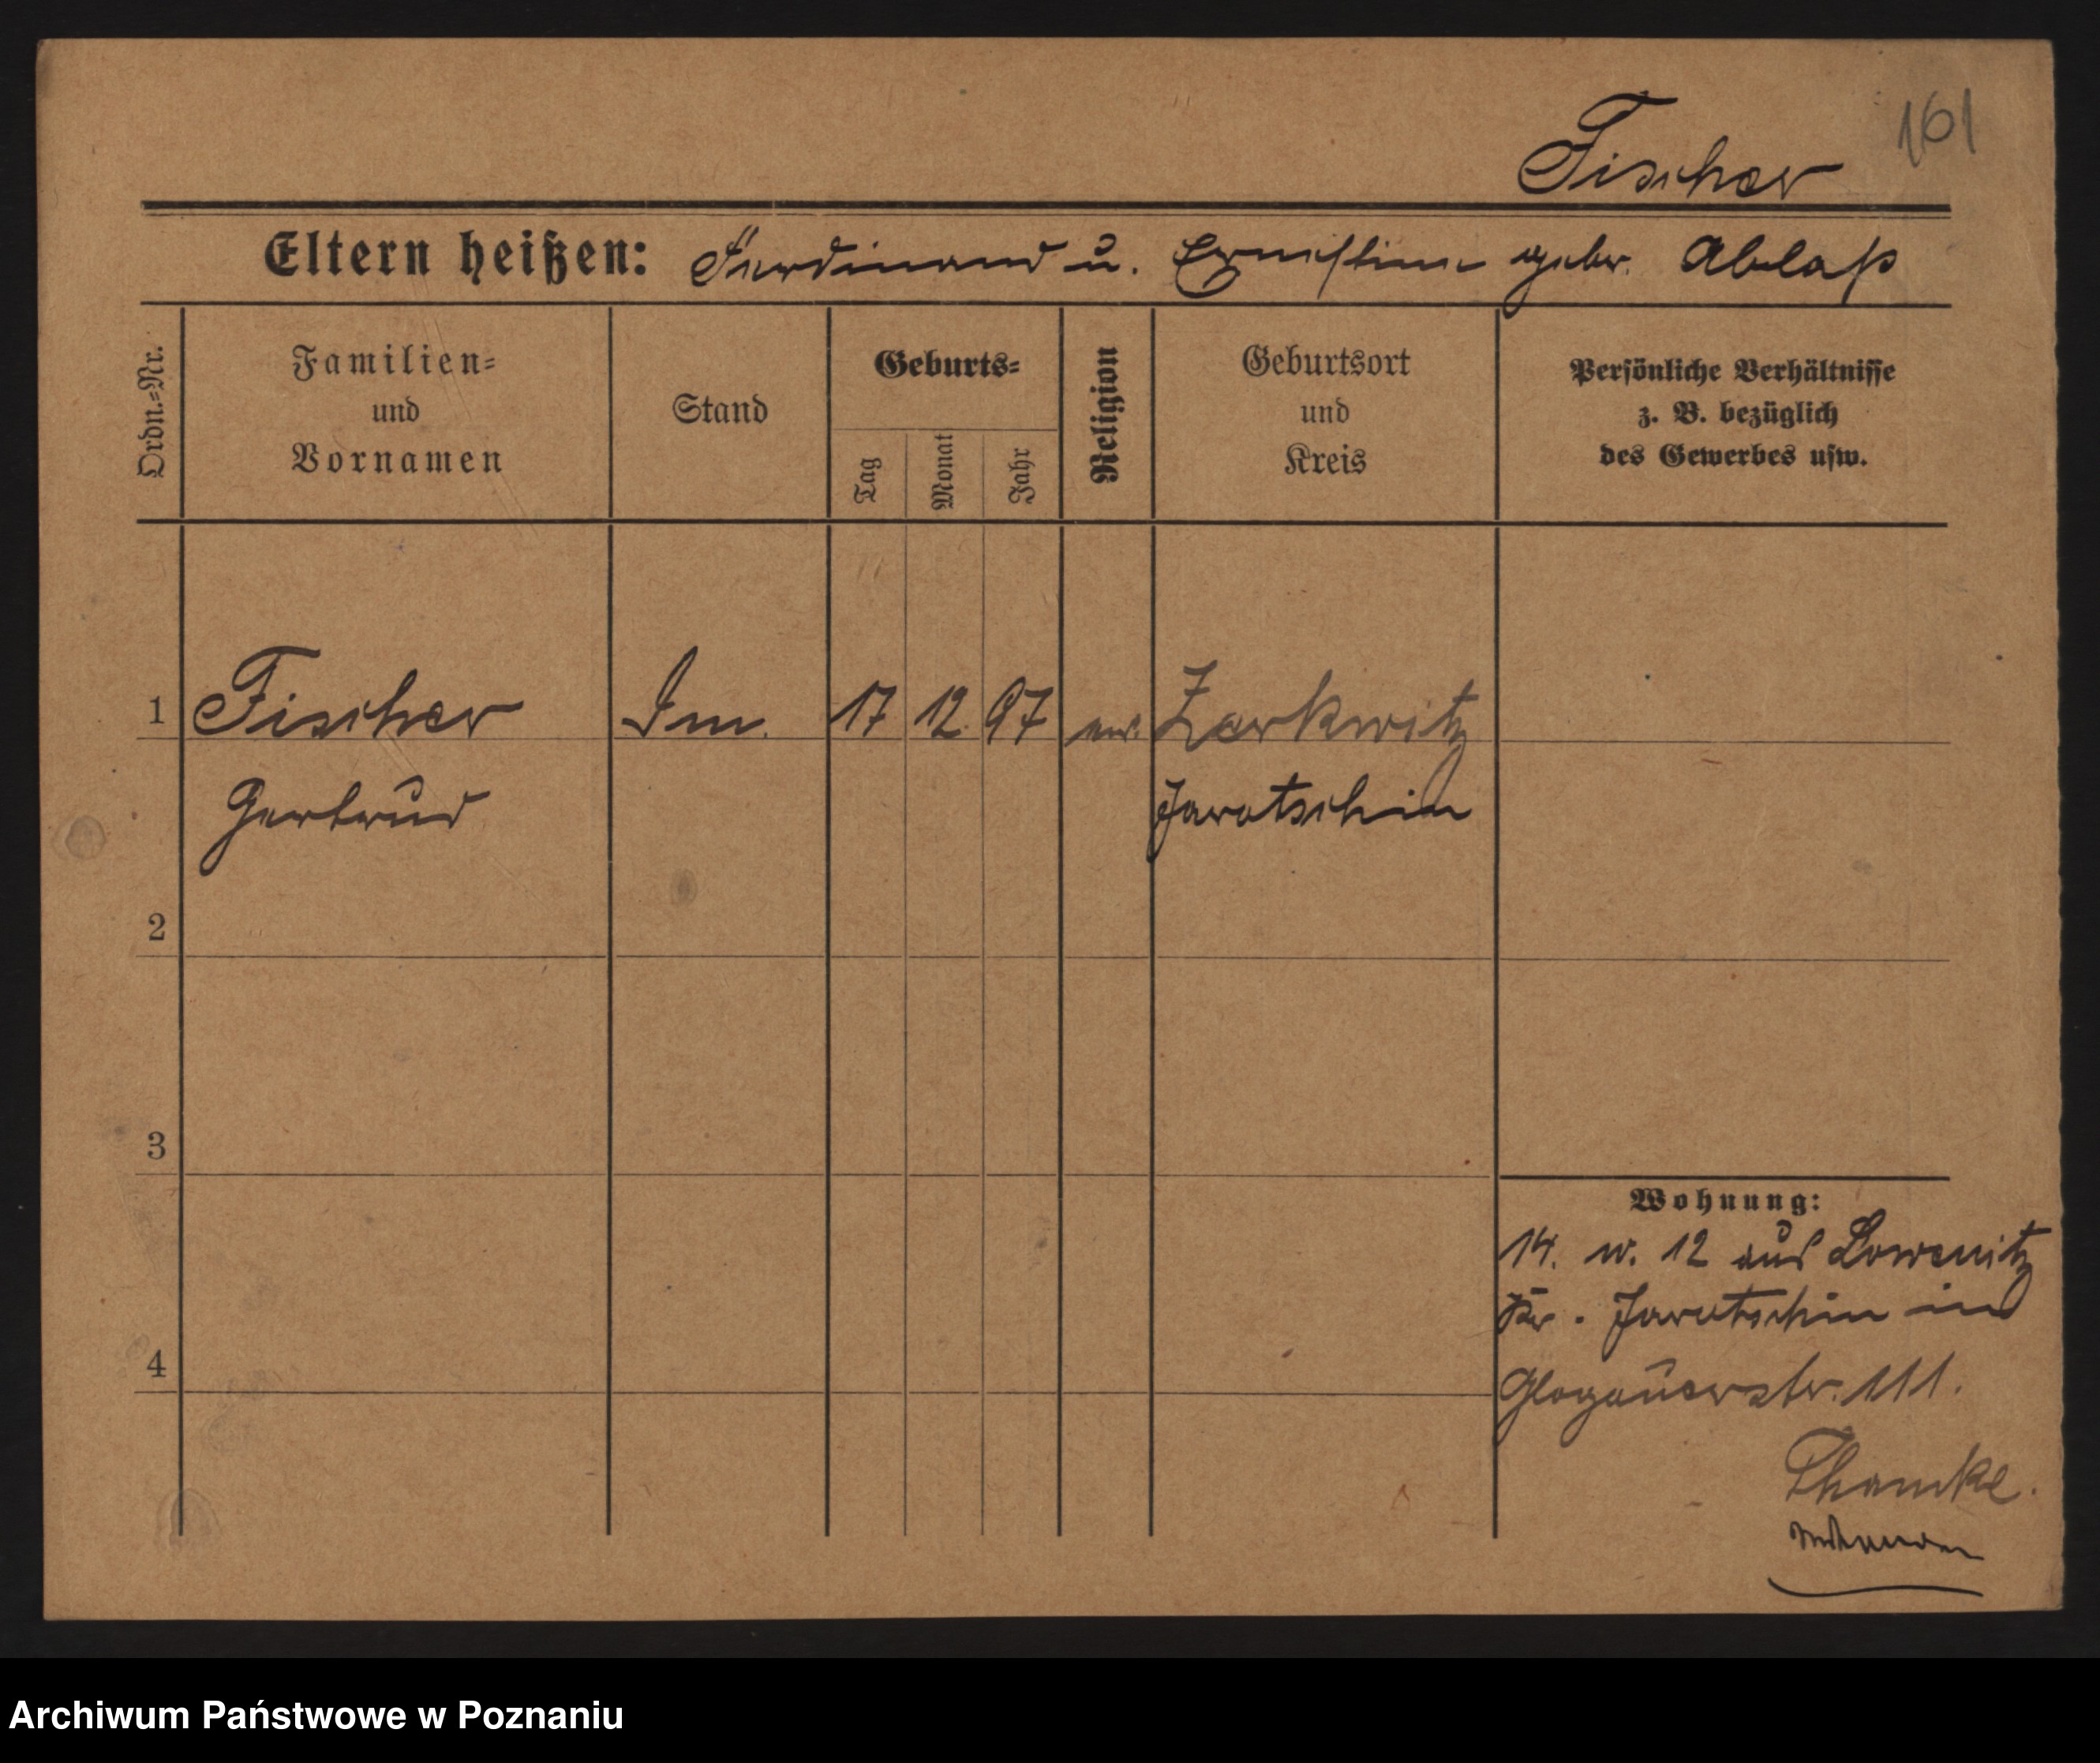 161
Fischer
Eltern heißen: Ferdinand u. Ernestine gebr. Ablaß
Ordn.=Nr.
Familien=
und
Vornamen
Stand
Geburts=
Tag
Monat
Jahr
Religion
Geburtsort
und
Kreis
Persönliche Verhältnisse
z. B. bezüglich
des Gewerbes usw.
1 Fischer 17 12. 97 ev. Zerkwitz
Gertrud Jarotschin
2
3
4
Wohnung:
14. 12 aus Lowenitz
Kr. Jarotschin in
Glogauerstr. 111.
Thomke.
Archiwum Państwowe w Poznaniu